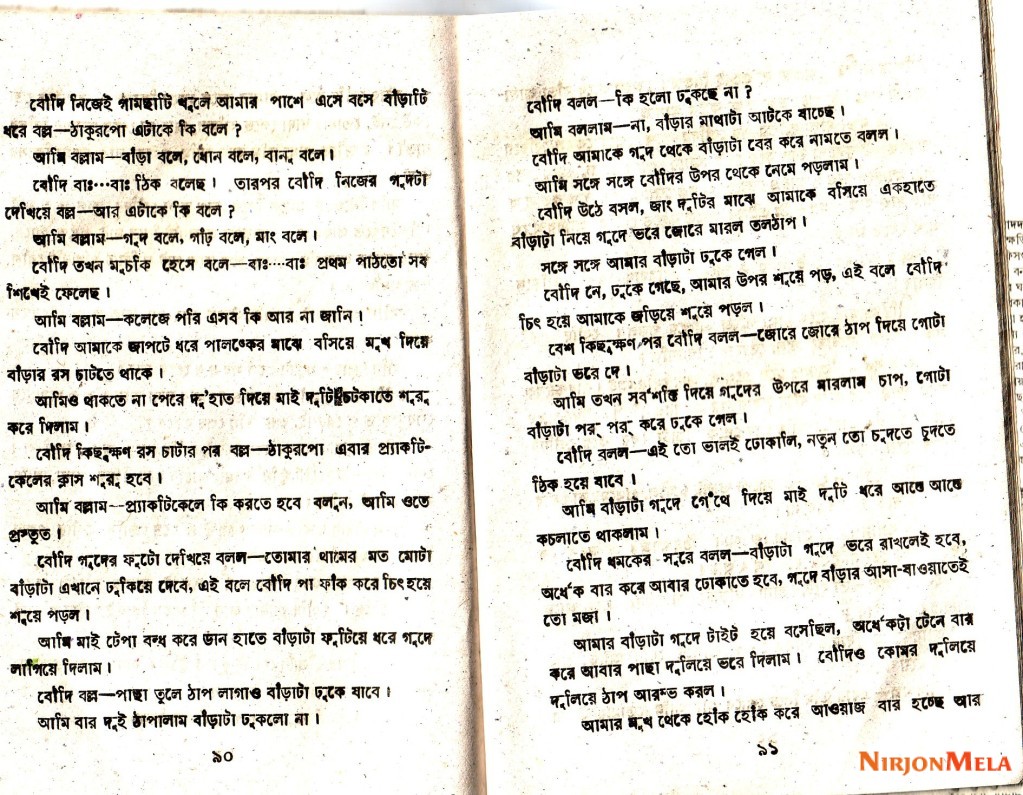 বৌদি নিজেই গামছাটি খুলে আমার পাশে এসে বসে বাঁড়াটি
ধরে বল্ল—ঠাকুরপো এটাকে কি বলে ?
আমি বল্লাম—বাঁড়া বলে, ধোন বলে, বানু বলে।
বৌদি বাঃ…বাঃ ঠিক বলেছ। তারপর বৌদি নিজের গুদটা
দেখিয়ে বল্ল—আর এটাকে কি বলে ?
আমি বল্লাম—গুদ বলে, গাঁঢ় বলে, মাং বলে।
বৌদি তখন মুচকি হেসে বলে—বাঃ….বাঃ প্রথম পাঠতো সব
শিখেই ফেলেছ।
আমি বল্লাম—কলেজে পরি এসব কি আর না জানি !
বৌদি আমাকে জাপটে ধরে পালঙ্কের মাঝে বসিয়ে মুখ দিয়ে
বাঁড়ার রস চাটতে থাকে।
আমিও থাকতে না পেরে দু'হাত দিয়ে মাই দুটি চটকাতে শুরু
করে দিলাম।
বৌদি কিছুক্ষণ রস চাটার পর বল্ল—ঠাকুরপো এবার প্র্যাকটি-
কেলের ক্লাস শুরু হবে।
আমি বল্লাম—প্র্যাকটিকেলে কি করতে হবে বলুন, আমি ওতে
প্রস্তুত।
বৌদি গুদের ফুটো দেখিয়ে বলল—তোমার থামের মত মোটা
বাঁড়াটা এখানে ঢুকিয়ে দেবে, এই বলে বৌদি পা ফাঁক করে চিৎ হয়ে
শুয়ে পড়ল।
আমি মাই টেপা বন্ধ করে ডান হাতে বাঁড়াটা ফুটিয়ে ধরে গুদে
লাগিয়ে দিলাম।
বৌদি বল্ল—পাছা তুলে ঠাপ লাগাও বাঁড়াটা ঢুকে যাবে।
আমি বার দুই ঠাপালাম বাঁড়াটা ঢুকলো না।
৯০
বৌদি বলল—কি হলো ঢুকছে না ?
আমি বললাম—না, বাঁড়ার মাথাটা আটকে যাচ্ছে।
বৌদি আমাকে গুদ থেকে বাঁড়াটা বের করে নামতে বলল।
আমি সঙ্গে সঙ্গে বৌদির উপর থেকে নেমে পড়লাম।
বৌদি উঠে বসল, জাং দুটির মাঝে আমাকে বসিয়ে একহাতে
বাঁড়াটা নিয়ে গুদে ভরে জোরে মারল তলঠাপ।
সঙ্গে সঙ্গে আমার বাঁড়াটা ঢুকে গেল।
বৌদি নে, ঢুকে গেছে, আমার উপর শুয়ে পড়, এই বলে বৌদি
চিৎ হয়ে আমাকে জড়িয়ে শুয়ে পড়ল।
বেশ কিছুক্ষণ পর বৌদি বলল—জোরে জোরে ঠাপ দিয়ে গোটা
বাঁড়াটা ভরে দে।
আমি তখন সর্বশক্তি দিয়ে গুদের উপরে মারলাম চাপ, গোটা
বাঁড়াটা পর্ পর্ করে ঢুকে গেল।
বৌদি বলল—এই তো ভালই ঢোকালি, নতুন তো চুদতে চুদতে
ঠিক হয়ে যাবে।
আমি বাঁড়াটা গুদে গেঁথে দিয়ে মাই দুটি ধরে আস্তে আস্তে
কচলাতে থাকলাম।
বৌদি ধমকের সুরে বলল—বাঁড়াটা গুদে ভরে রাখলেই হবে,
অর্ধেক বার করে আবার ঢোকাতে হবে, গুদে বাঁড়ার আসা-যাওয়াতেই
তো মজা।
আমার বাঁড়াটা গুদে টাইট হয়ে বসেছিল, অর্ধেকটা টেনে বার
করে আবার পাছা দুলিয়ে ভরে দিলাম। বৌদিও কোমর দুলিয়ে
দুলিয়ে ঠাপ আরম্ভ করল।
আমার মুখ থেকে হোঁক হোঁক করে আওয়াজ বার হচ্ছে আর
৯১
NIRJONMELA